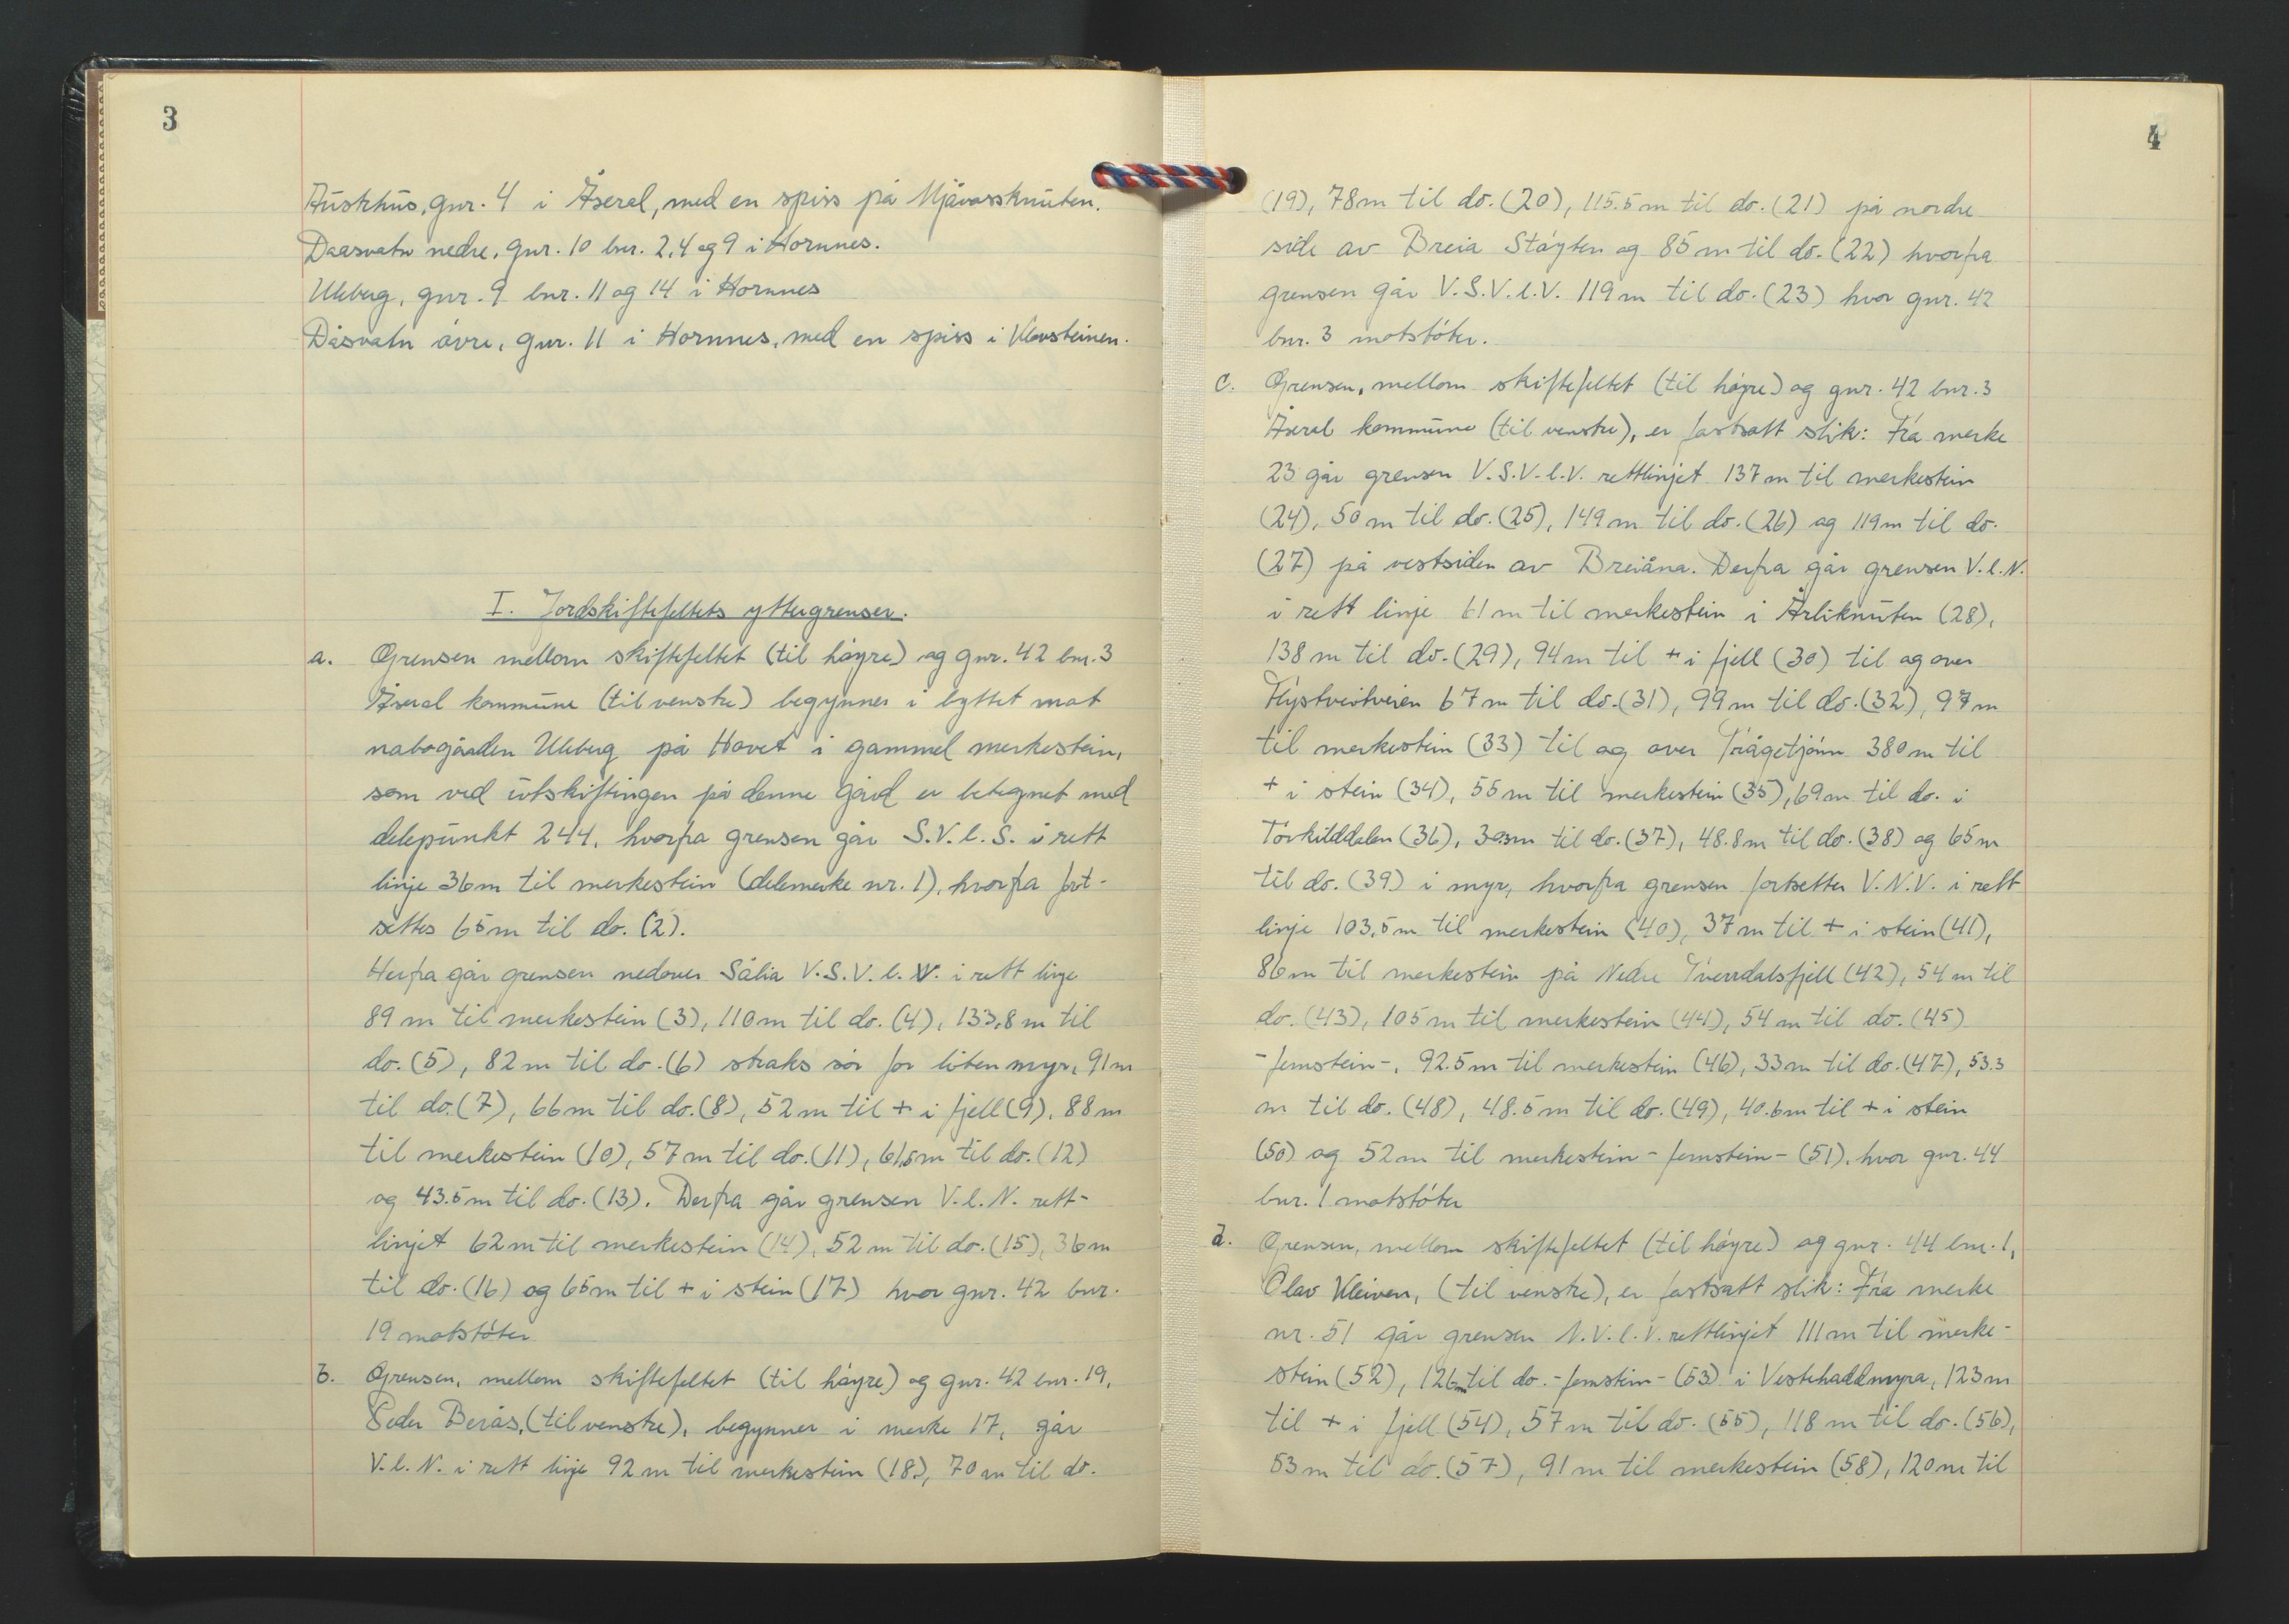 3
Austrhus, gnr. 4 i Åseral, med en spiss på Mjåvassknuten.
Daasvatn nedre, gnr. 10 bnr. 2,4 og 9 i Hornnes.
Uleberg, gnr. 9 bnr. 11 og 14 i Hornnes
Dåsvatn øvre, gnr. 11 i Hornnes, med en spiss i Klovsteinen.
I. Jordskiftefeltets yttergrenser.
a. Grensen mellom skiftefeltet (til høyre) og gnr. 42 bnr. 3
Åseral kommune (til venstre) begynner i byttet mot
nabogården Uleberg på Hovet i gammel merkestein,
som ved utskiftingen på denne gård er betegnet med
delepunkt 244, hvorfra grensen går S.V.l.S. i rett
linje 36m til merkestein (delemerke nr. 1), hvorfra fort-
settes 65m til do. (2).
Herfra går grensen nedover Sålia V.S.V.l.V. i rett linje
89 m til merkestein (3), 110m til do. (4), 133,8 m til
do. (5), 82 m til do. (6) straks sør for liten myr, 91m
til do. (7), 66m til do. (8), 52 m til + i fjell (9), 88 m
til merkestein (10), 57m til do. (11), 61,5m til do. (12)
og 43.5m til do. (13). Derfra går grensen V.l.N. rett-
linjet 62m til merkestein (14), 52 m til do. (15), 36m
til do. (16) og 65m til + i stein (17) hvor gnr. 42 bnr.
19 motstøter
b. Grensen, mellom skiftefeltet (til høyre) og gnr. 42 bnr. 19,
Peder Berås, (til venstre), begynner i merke 17, går
V.l.N. i rett linje 92 m til merkestein (18), 70 m til do.
4
(19), 78m til do. (20), 115.5m til do. (21) på nordre
side av Breia Støyten og 85 m til do. (22) hvorfra
grensen går V.S.V.l.V. 119 m til do. (23) hvor gnr. 42
bnr. 3 motstøter.
c. Grensen, mellom skiftefeltet (til høyre) og gnr. 42 bnr. 3
Åseral kommune (til venstre), er fastsatt slik: Fra merke
23 går grensen V.S.V.l.V. rettlinjet 137m til merkestein
(24), 50 m til do. (25), 149m til do. (26) og 119m til do.
(27) på vestsiden av Breiåna. Derfra går grensen V.l.N.
i rett linje 61m til merkestein i Årliknuten (28),
138 m til do. (29), 94m til + i fjell (30) til og over
67m til do. (31), 99m til do. (32), 97m
til merkestein (33) til og over Trågetjønn 380 m til
+ i stein (34), 55 m til merkestein (35), 69m til do. i
Torkilddalen (36), til do. (37), 48.8m til do. (38) og 65m
til do. (39) i myr, hvorfra grensen fortsetter V.N.V. i rett
linje 103,5m til merkestein (40), 37m til + i stein (41),
86m til merkestein på Nedre Tverrdalsfjell (42), 54 m til
do. (43), 105 m til merkestein (44), 54 m til do. (45)
- femstein -, 92.5m til merkestein (46), 33m til do. (47), 53.3
m til do. (48), 48.5m til do. (49), 40.6m til + i stein
(50) og 52m til merkestein - femstein - (51), hvor gnr. 44
bnr. 1 motstøter
d. Grensen, mellom skiftefeltet (til høyre) og gnr. 44 bnr. 1,
Olav Kleiven, (til venstre), er fastsatt slik: Fra merke
nr. 51 går grensen N.V.l.V. rettlinjet 111m til merke-
stein (52), 126m til do. - femstein - (53) i Vestehaddmyra, 123m
til + i fjell (54), 57m til do. (55), 118 m til do. (56),
53m til do. (57), 91m til merkestein (58), 120m til